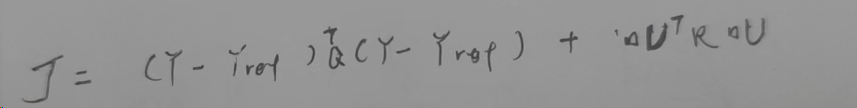 J = (Y - Yref)ᵀQ(Y - Yref) + ΔUᵀRΔU